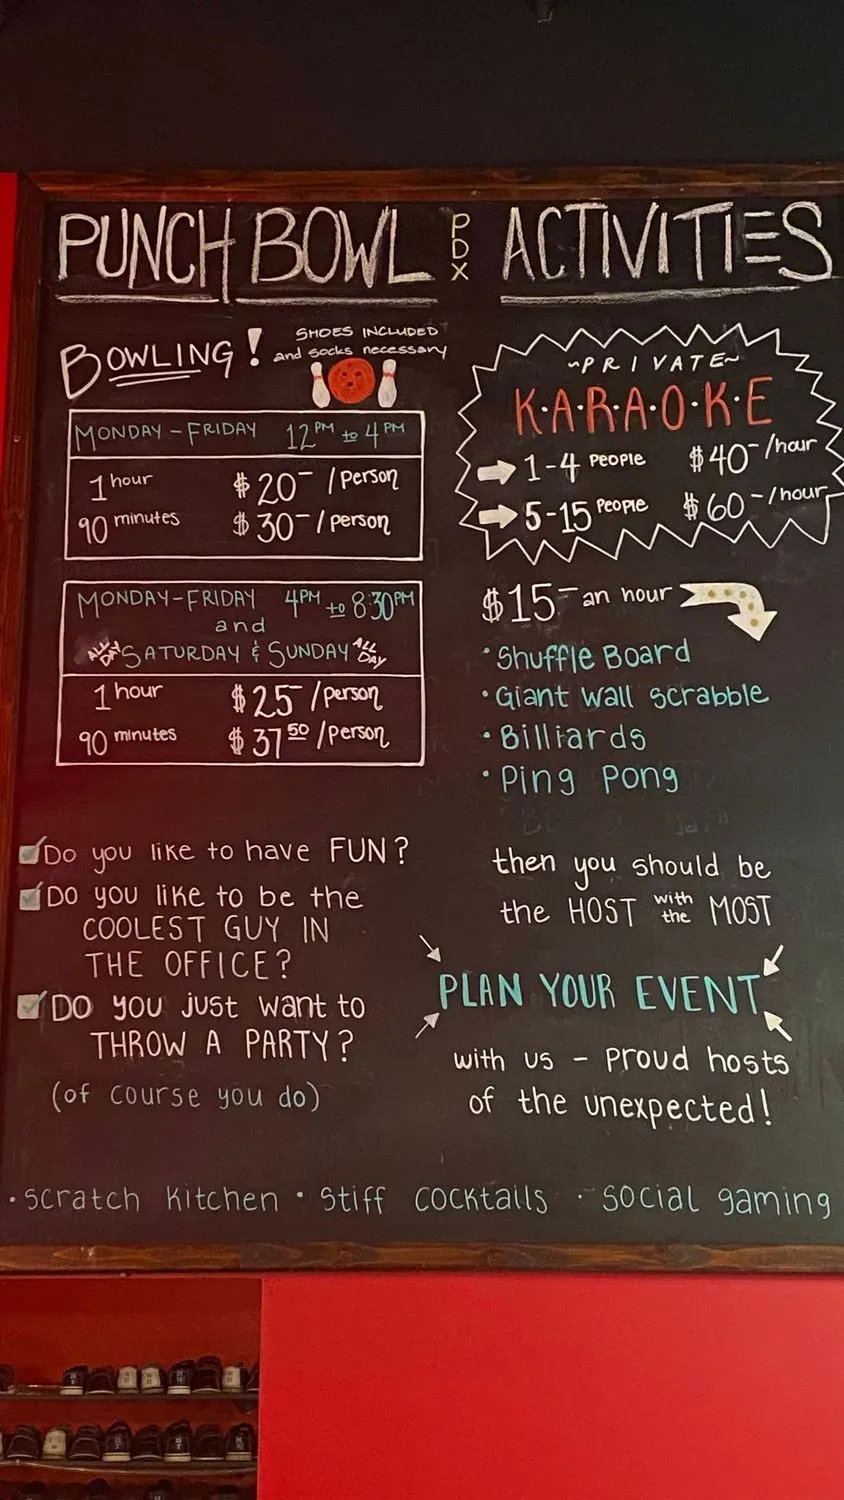 PUNCH BOWL PDX ACTIVITIES
BOWLING!
SHOES INCLUDED
and socks necessary
MONDAY-FRIDAY 12PM to 4PM
1 hour $20- /person
90 minutes $30- /person
MONDAY-FRIDAY 4PM to 8:30PM
and
ALL DAY SATURDAY & SUNDAY ALL DAY
1 hour $25- /person
90 minutes $37 50 /person
~PRIVATE~
K·A·R·A·O·K·E
1-4 PEOPLE $40-/hour
5-15 PEOPLE $60-/hour
$15- an hour
·Shuffle Board
·Giant Wall Scrabble
·Billiards
·Ping Pong
Do you like to have FUN?
Do you like to be the
COOLEST GUY IN
THE OFFICE?
DO you just want to
THROW A PARTY?
(of course you do)
then you should be
the HOST with the MOST
PLAN YOUR EVENT
with us - proud hosts
of the unexpected!
·scratch kitchen · stiff cocktails · social gaming